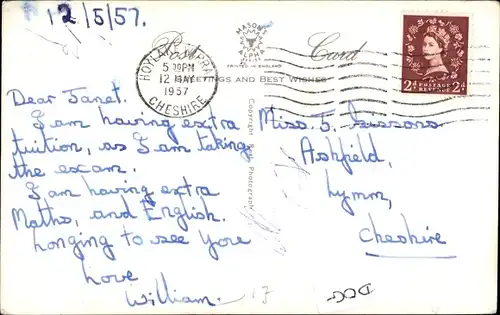 12/5/57.
MASON'S
ALPHA
Post Card
PRINTED IN ENGLAND
GREETINGS AND BEST WISHES
5 PM
12 MAY
1957
CHESHIRE
POSTAGE
REVENUE
2D 2D
Dear Janet.
I am having extra
tuition, as I am taking
the exam.
I am having extra
Maths, and English.
Longing to see you
Love
William.
Copyright Photograph
Miss J. Sissons
Ashfield,
Lymm,
Cheshire
DCG